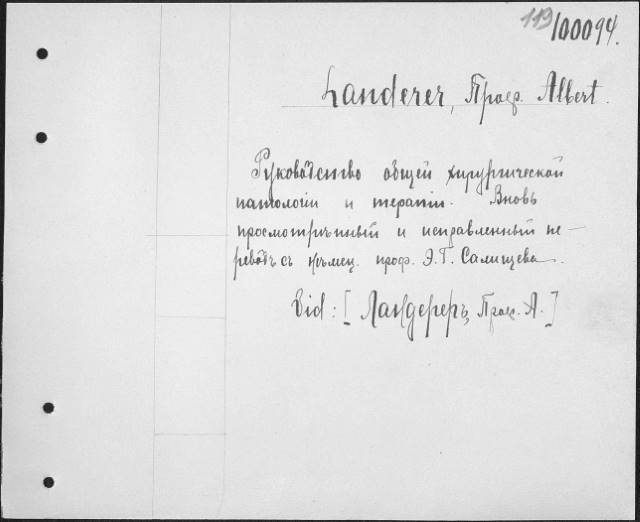 119/100094.
Landerer, Проф. Albert.
Руководство общей хирургической
патологіи и терапіи. Вновь
просмотрѣнный и исправленный пе-
реводъ съ нѣмец. проф. Э. Г. Салищева.
Vid: [Ландереръ, Проф. А.]